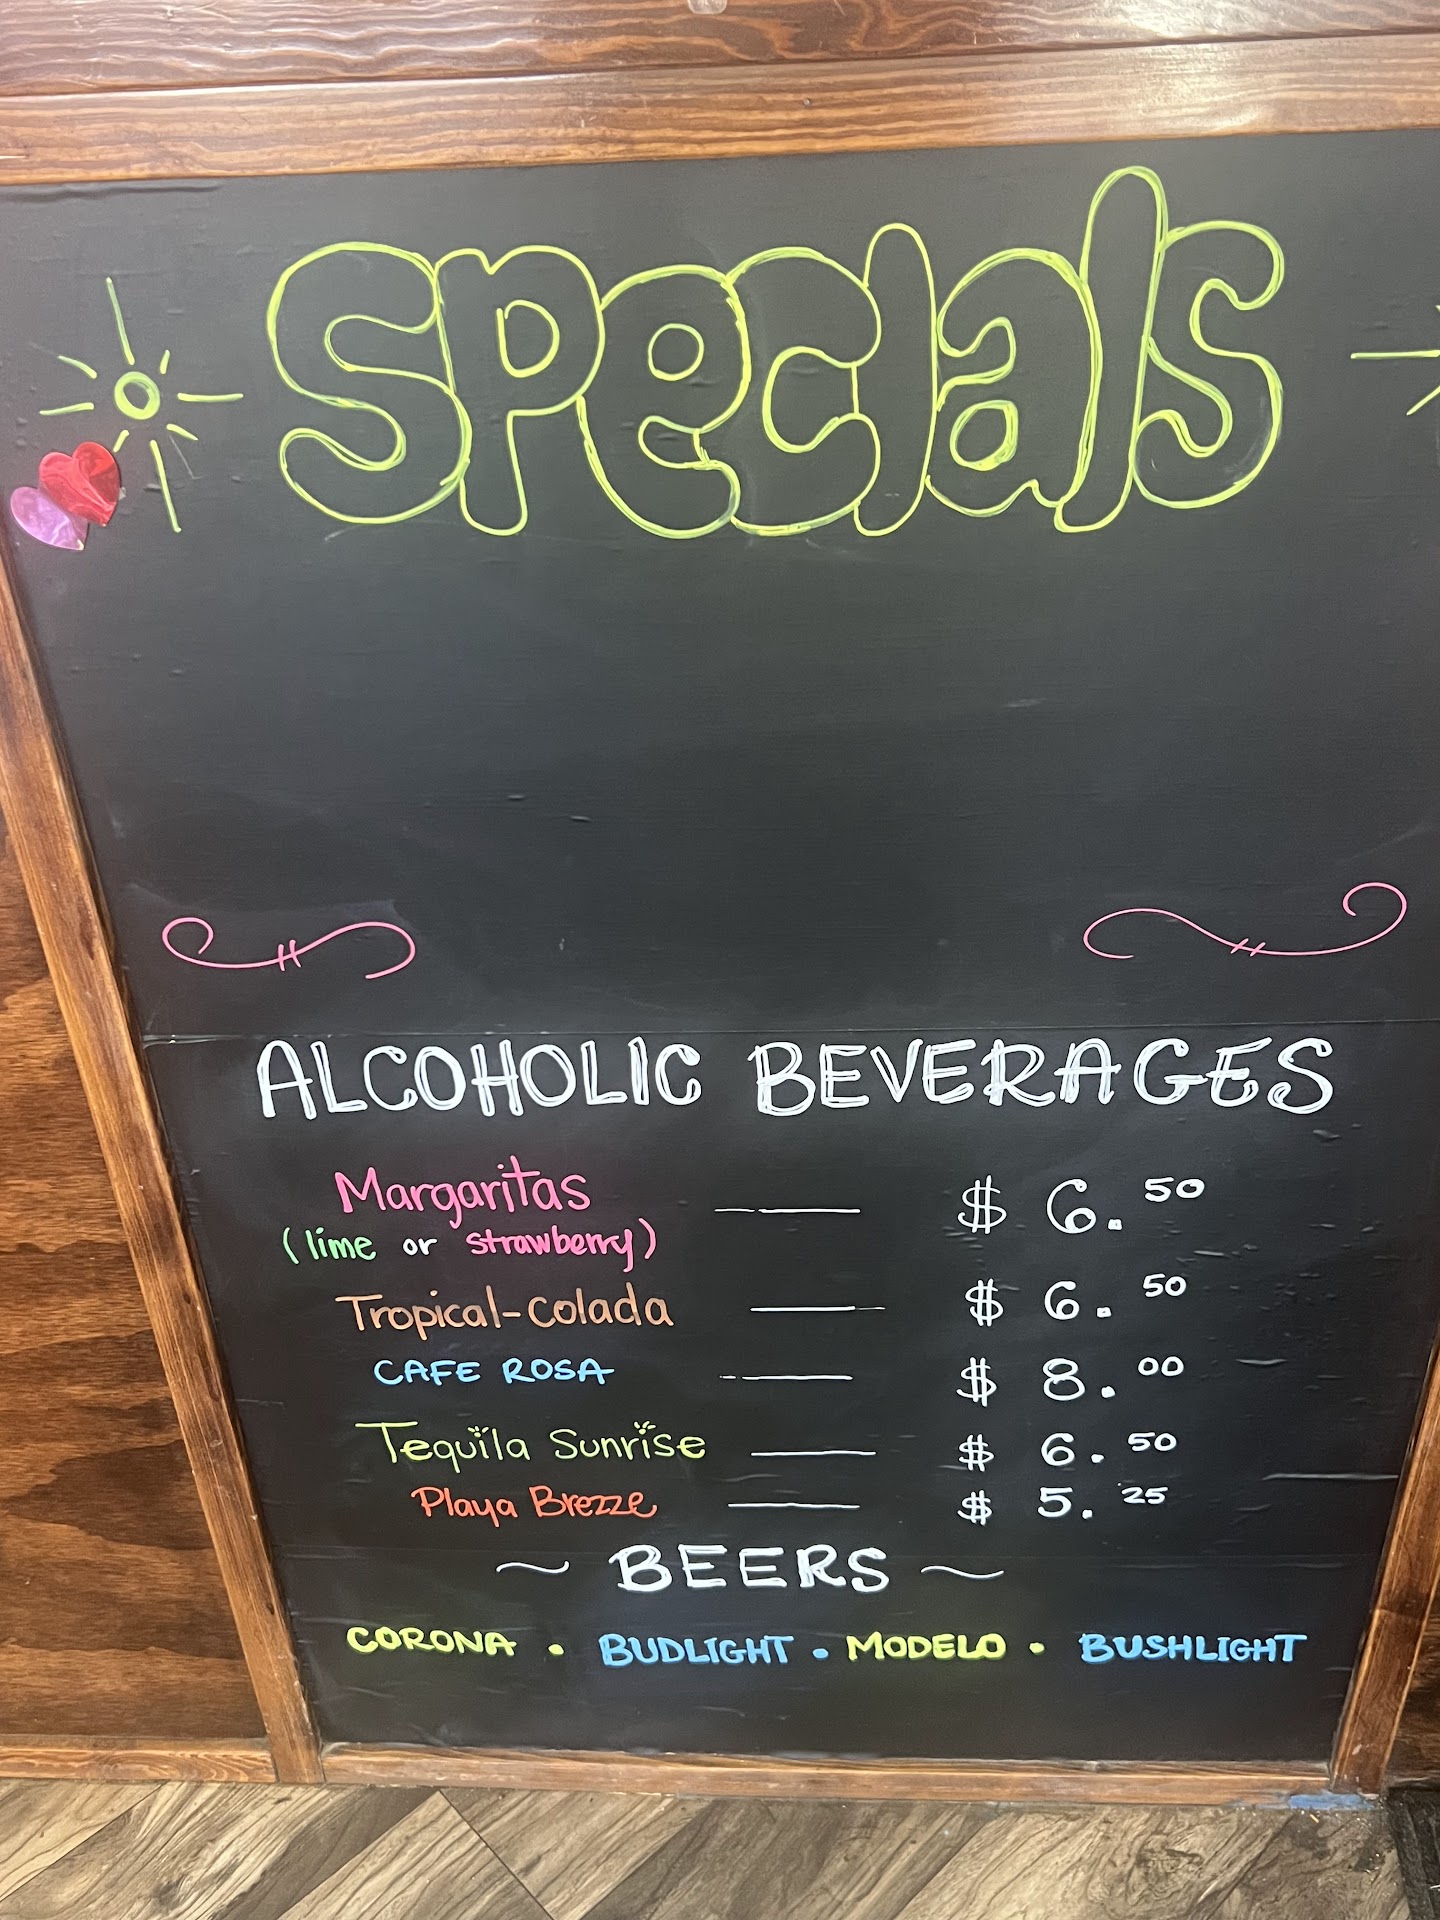 Specials
ALCOHOLIC BEVERAGES
Margaritas $ 6.50
(lime or strawberry)
Tropical-Colada $ 6.50
CAFE ROSA $ 8.00
Tequila Sunrise $ 6.50
Playa Brezze $ 5.25
~ BEERS ~
CORONA • BUDLIGHT • MODELO • BUSHLIGHT